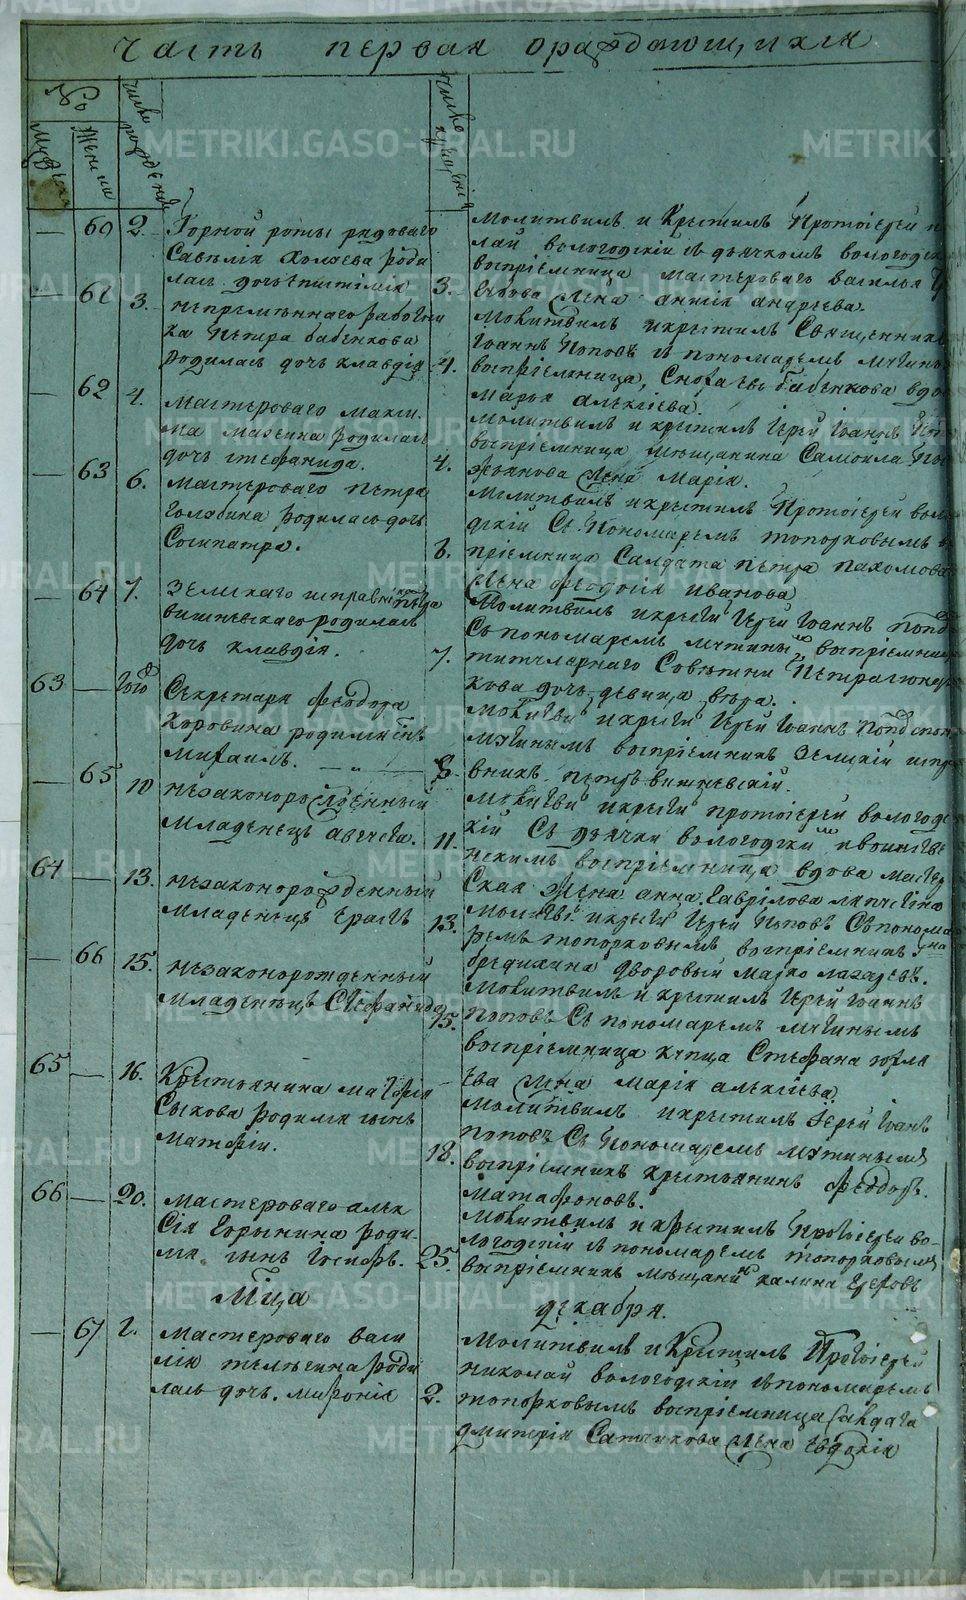 часть первая ораждающихся
№
Мужска
Женска
число рожденiй
число крещенiя
— 60 2. Горной роты рядоваго
Савѣлiя Холаева роди
лась дочь епистимiя
3.
молитвилъ и Крѣстилъ Протоiерей н
лай вологодскiй съ дьячкомъ вологодск
воспрiемница мастероваго василья
жена анисiя андрѣева.
— 61 3. непремѣннаго работни
ка Пѣтра бабѣнкова
родилась дочь клавдiя 4.
Молитвилъ и крѣстилъ Свящѣнникъ
Iоаннъ Поповъ съ пономаремъ мѣтины
воспрiемница, бабѣнкова вдо
марья алѣксiева.
— 62 4. Мастероваго макси
ма родилась
дочь стѣфанида. 4.
молитвилъ и крѣстилъ Iерей Iоаннъ По
воспрiемница мѣщанина Самойла
жена Марiя.
— 63 6. Мастероваго пѣтра
Голявина родилась дочь
Сосипатра. 6.
Молитвилъ и крѣстилъ Протоiерей вол
дскiй Съ Пономаремъ топорковымъ в
прiемница Салдата пѣтра пахомова
жена феодосiя иванова
— 64 7. Зѣмскаго исправника пѣтра
вишнѣвскаго родилась
дочь клавдiя. 7.
Молитвилъ и крѣсти Iерей Iоаннъ попов
Съ пономаремъ мѣтины, воспрiемни
титулярнаго Совѣтни Пѣтра
кова дочь дѣвица вѣра.
63 — 8го Сѣкрѣтаря феодора
Коровина родился сынъ
Михаилъ. 8.
Моли и крѣсти Iерей Iоаннъ Поп съ пон
мѣтинымъ воспрiемникъ Зѣмскiй испр
вникъ пѣтръ вишнѣвскiй.
— 65 10 незаконорожденный
младенецъ августа. 11.
Моли и крѣсти протоiерей вологод
кiй Съ дьячки вологодски
воспрiемница вдова мастер
ская жена анна Гаврилова
64 — 13. незаконорожденный
младенецъ Ерастъ 13.
Моли и крѣсти Iерей Поповъ Съ понома
ремъ топорковымъ воспрiемникъ
дворовый марко лазаревъ.
— 66 15. незаконорожденный
младенецъ Стѣфанида 15.
Молитвилъ и крѣстилъ Iерей Iоаннъ
поповъ Съ пономаремъ мѣтинымъ
воспрiемница купца Стѣфана
ева жена марiя алѣксiева
65 — 16. Крѣстьянина
Сыкова родился сынъ
Матфѣй. 18.
Молитвилъ и крѣстилъ Iерей Iоанъ
поповъ Съ Пономаремъ мѣтинымъ
воспрiемникъ крѣстьянинъ феодоръ
Матафоновъ.
66 — 20. Мастероваго алѣк
сiя роди
лся сынъ Iосифъ. 25.
Молитвилъ и крѣстилъ Протоiерей во-
логодскiй съ пономаремъ топорковымъ
воспрiемникъ мѣщанинъ калина Егоровъ
Мца декабря.
— 67 1. Мастероваго васи
лiя роди
лась дочь. мирониiя 2.
Молитвилъ и Крѣстилъ Протоiерей
николай вологодскiй съ пономаремъ
топорковымъ воспрiемница салдата
дмитрiя жена евдокiя
METRIKI.GASO-URAL.RU